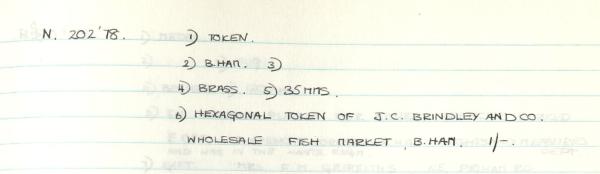 N. 202'78. 1) TOKEN.
2) B.HAM. 3)
4) BRASS. 5) 35 MMS.
6) HEXAGONAL TOKEN OF J.C. BRINDLEY AND CO.
WHOLESALE FISH MARKET, B.HAM. 1/-.